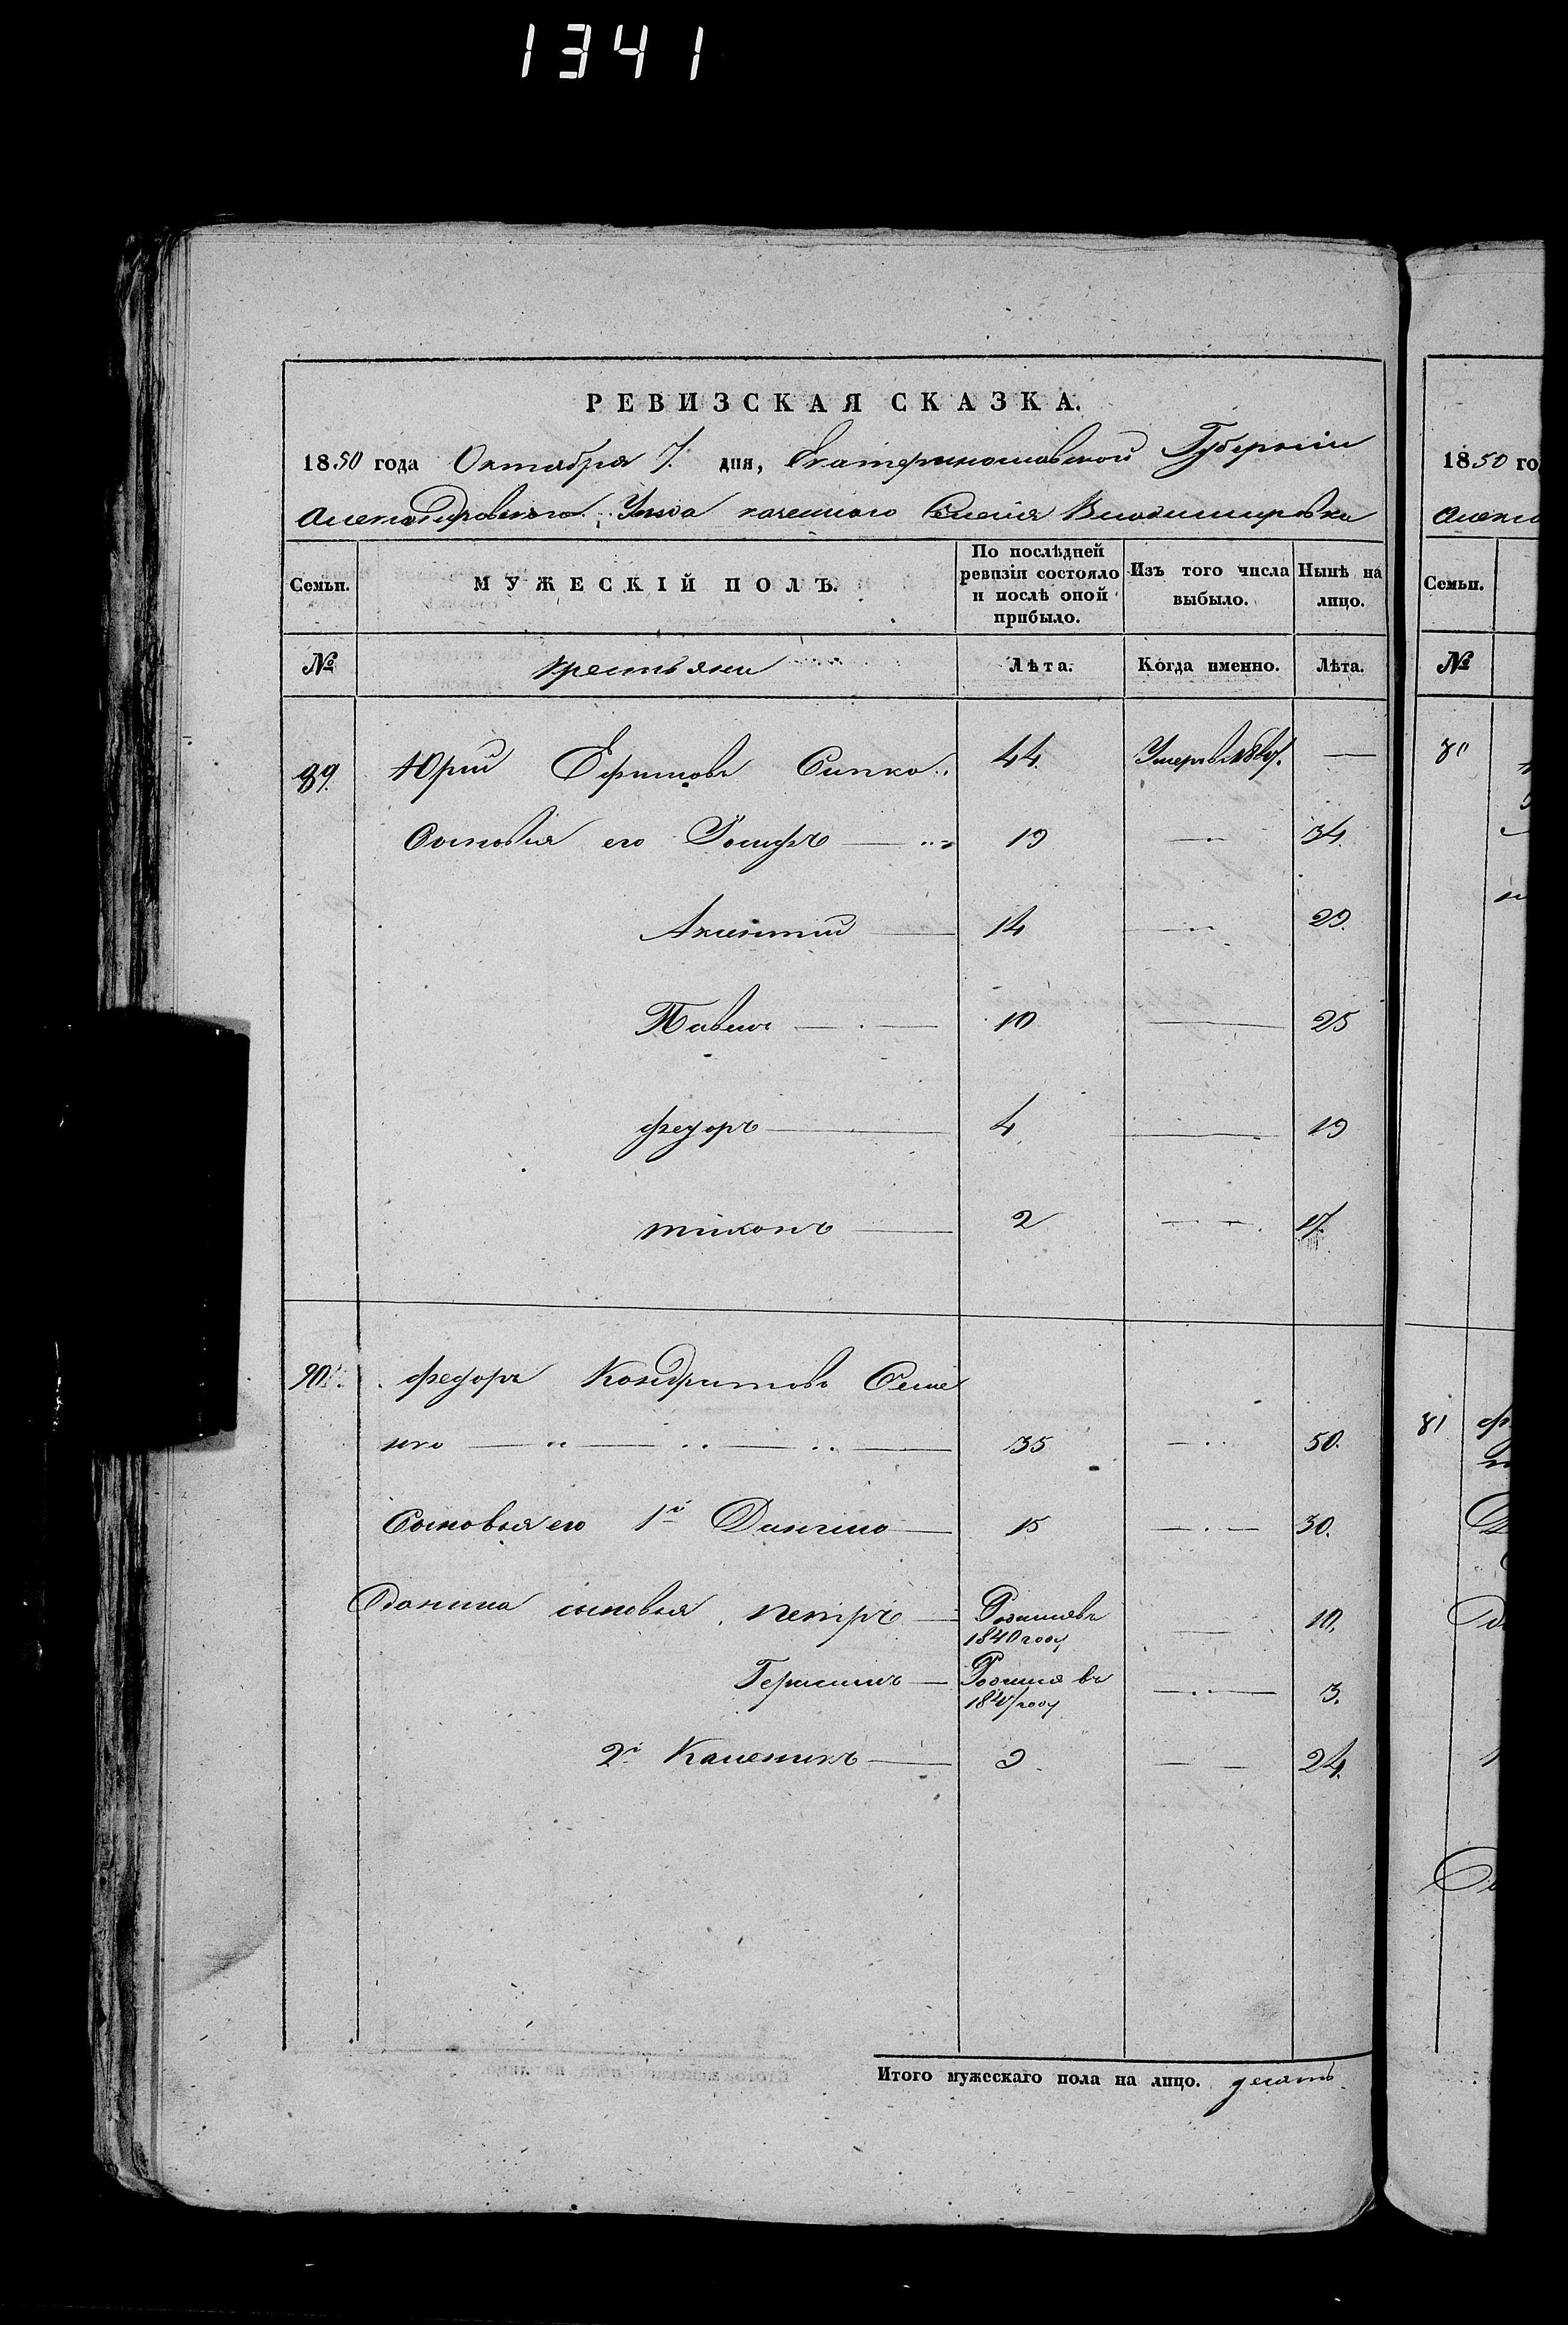 1341
РЕВИЗСКАЯ СКАЗКА.
1850 года Октября 7. дня, Екатеринославской Губерніи
Александровского Уезда казенного Селенія Владимировка
Семьи. МУЖЕСКІЙ ПОЛЪ. По послѣдней ревизіи состояло и послѣ оной прибыло. Изъ того числа выбыло. Нынѣ на лицо.
№ крестьяне Лѣта. Когда именно. Лѣта.
89. Юрий Ефимовъ Сипко 44. Умеръ в —
Сыновья его Иосифъ — 19 — 34.
Аксентий — 14 — 29.
Павелъ — 10 — 25
Федоръ — 4 — 19
тихонъ — 2 — 17.
90. Федоръ Кондратовъ Семе
нко — 35 — 50.
Сыновья его 1й Данило — 15 — 30.
Данила сыновья петръ — Родился въ 1840 году — 10.
Герасимъ — Родился въ 1847 году — 3.
2й Каленикъ — 9 — 24.
Итого мужескаго пола на лицо. десять
1850 го
Алекса
Семьи.
№
80
81